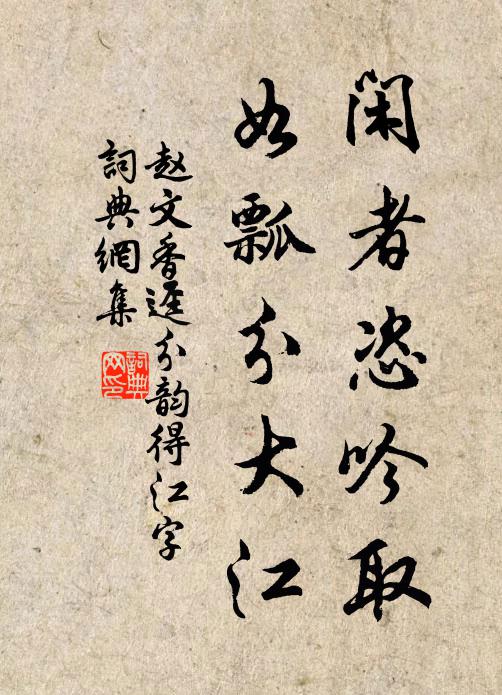 闲者恣吟取
如瓢分大江
赵文香遥分韵得江字
詞典網集
詞典
网印